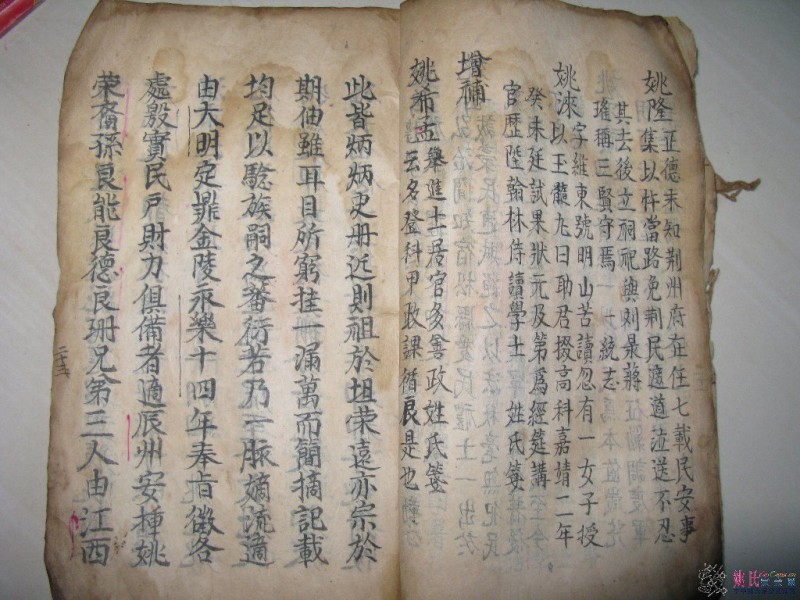 姚隆 正德末知荆州府在任七載民安事
集以忤當路免荆民遮道泣送不忍
其去後立祠祀與則景蔣
瑤稱三賢守焉一統志
姚淶 字維東號明山苦讀忽有一女子授
以玉髓九日助君掇高科嘉靖二年
癸未廷試果狀元及第爲經筵講
官歷陞翰林侍讀學士 姓氏箋
增補
姚希孟 舉進士居官多善政姓氏箋
云名登科甲政課循良是也
此皆炳炳史册近則祖於坦榮遠亦宗於
期伷雖耳目所窮挂一漏萬而簡摘記載
均足以騐族嗣之蕃衍若乃一脉嫡流適
由大明定鼎金陵永樂十四年奉旨徵各
處殷實民戶財力俱備者適辰州安挿姚
榮裔孫良能良德良珊兄第三人由江西
二十三
姚氏